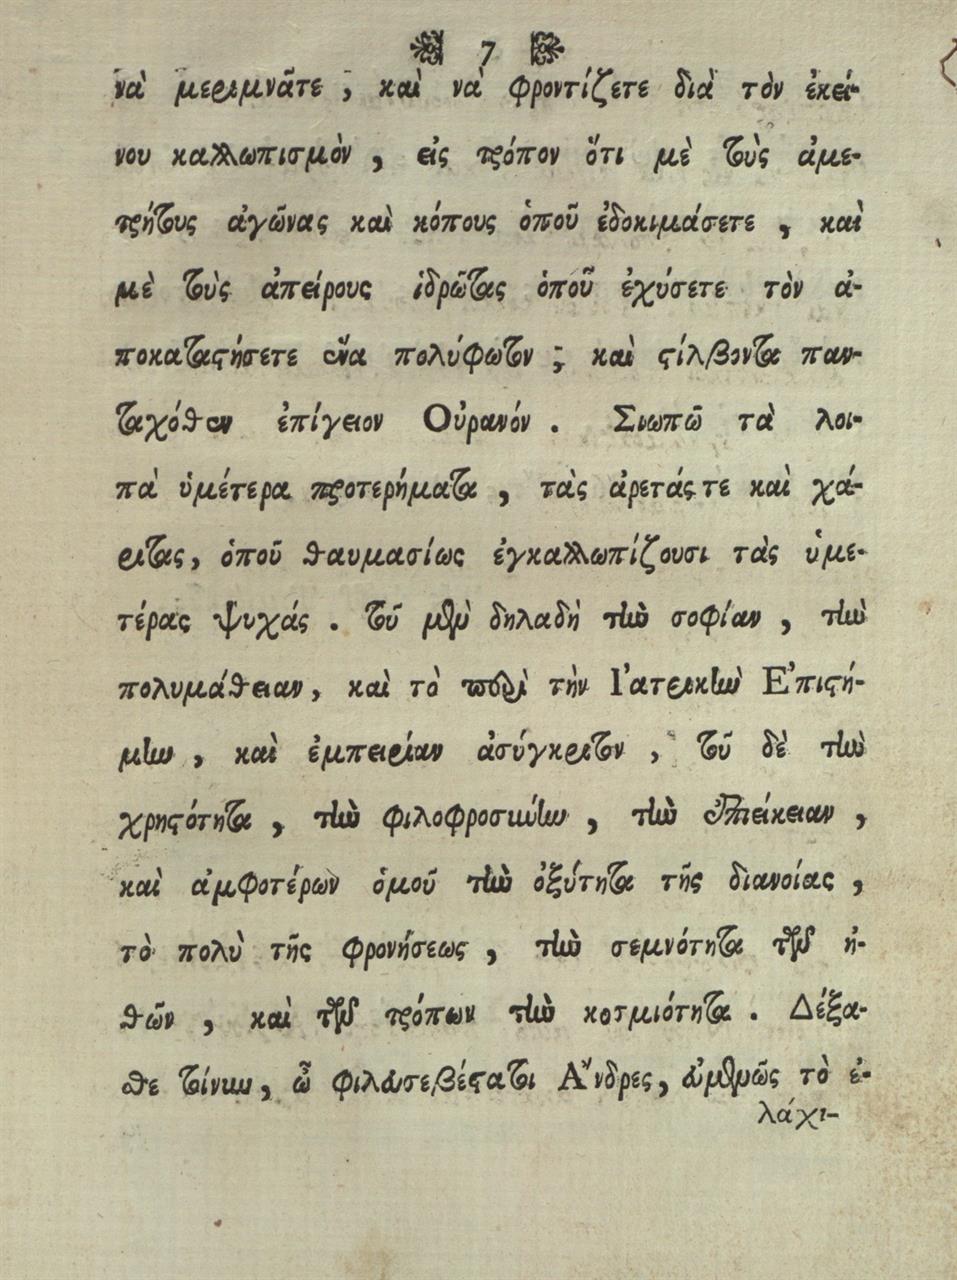 7
νὰ μεριμνᾶτε, καὶ νὰ φροντίζετε διὰ τὸν ἐκεί-
νου καλλωπισμὸν, εἰς τρόπον ὅτι μὲ τοὺς ἀμε-
τρήτους ἀγῶνας καὶ κόπους ὁποῦ ἐδοκιμάσετε, καὶ
μὲ τοὺς ἀπείρους ἱδρῶτας ὁποῦ ἐχύσετε τὸν ἀ-
ποκαταστήσετε ἕνα πολύφωτον, καὶ στίλβοντα παν-
ταχόθεν ἐπίγειον Οὐρανόν. Σιωπῶ τὰ λοι-
πὰ ὑμέτερα προτερήματα, τὰς ἀρετάς τε καὶ χά-
ριτας, ὁποῦ θαυμασίως ἐγκαλλωπίζουσι τὰς ὑμε-
τέρας ψυχάς. τοῦ μὲν δηλαδὴ τὴν σοφίαν, τὴν
πολυμάθειαν, καὶ τὸ περὶ τὴν Ἰατρικὴν Ἐπιστή-
μην, καὶ ἐμπειρίαν ἀσύγκριτον, τοῦ δὲ τὴν
χρηστότητα, τὴν φιλοφροσύνην, τὴν ἐπιείκειαν,
καὶ ἀμφοτέρων ὁμοῦ τὴν ὀξύτητα τῆς διανοίας,
τὸ πολὺ τῆς φρονήσεως, τὴν σεμνότητα τῶν ἠ-
θῶν, καὶ τῶν τρόπων τὴν κοσμιότητα. Δέξα-
σθε τοίνυν, ὦ φιλευσεβέστατοι Ἄνδρες, εὐμενῶς τὸ ἐ-
λάχι-